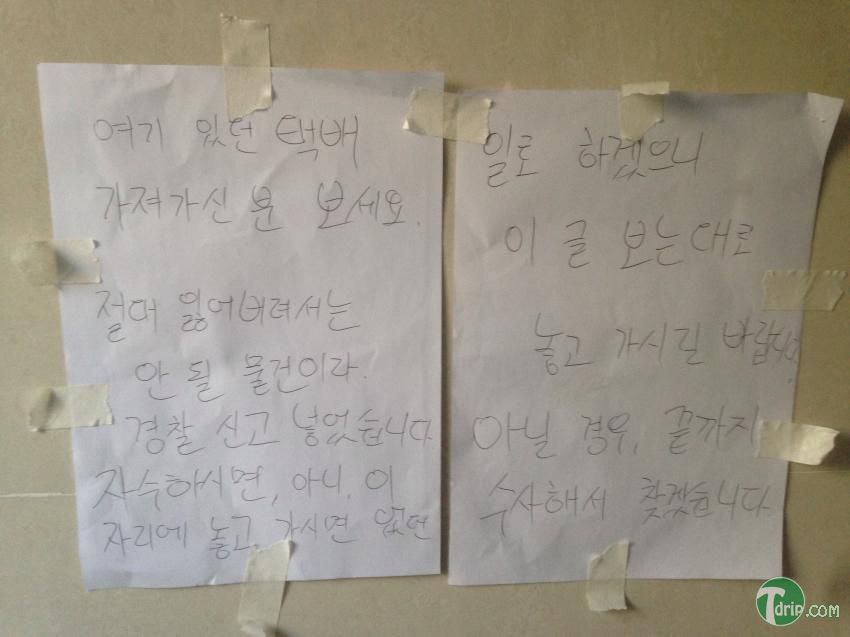 여기 있던 택배
가져가신 분 보세요.
절대 잃어버려서는
안 될 물건이라.
경찰 신고 넣었습니다.
자수하시면, 아니, 이
자리에 놓고 가시면 없던
일로 하겠으니
이 글 보는대로
놓고 가시길 바랍니다.
아닐 경우, 끝까지
수사해서 찾겠습니다.
Tdrip.com